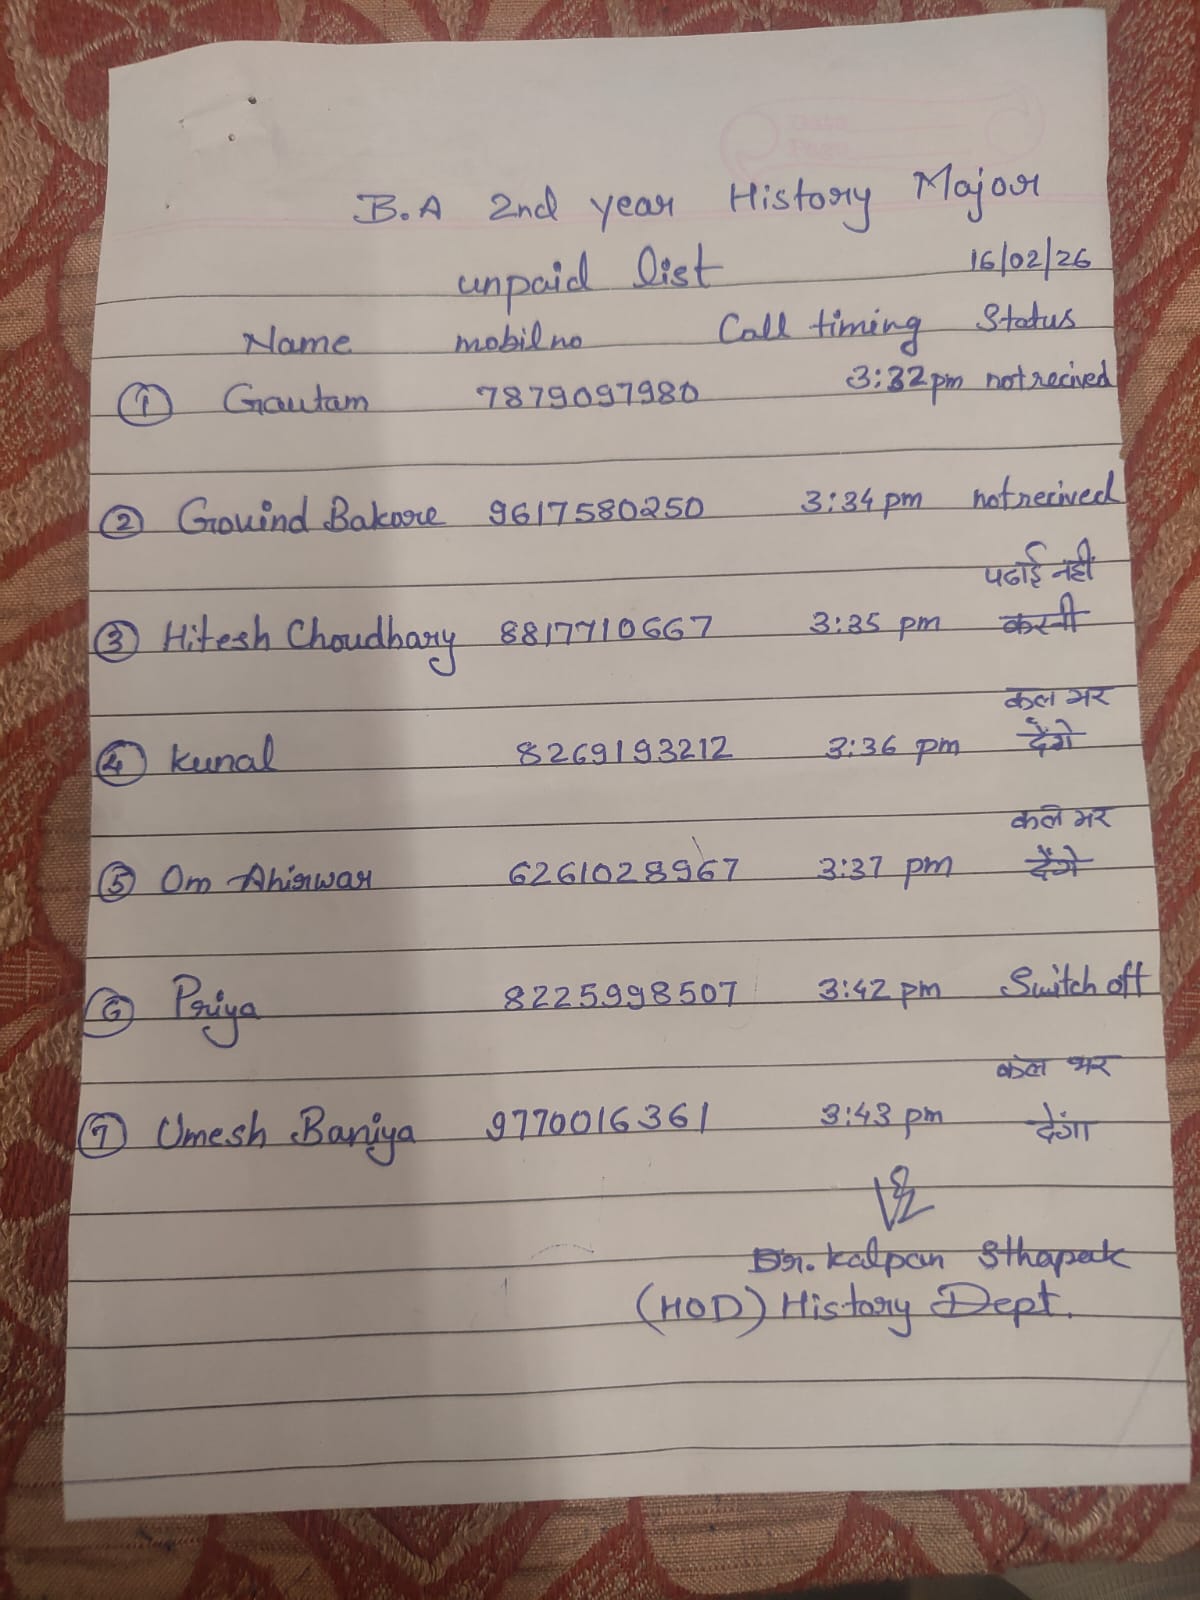 Date
Page
B.A 2nd year History Major
unpaid list 16/02/26
Name mobil no Call timing Status
① Gautam 7879097980 3:32pm not recived
② Govind Bakore 9617580250 3:34pm not recived
पढाई नहीं
③ Hitesh Choudhary 8817710667 3:35 pm करनी
कल भर
④ Kunal 8269193212 3:36 pm देंगे
कल भर
⑤ Om Ahirwar 6261028967 3:37 pm देंगे
⑥ Priya 8225998507 3:42 pm Switch off
कल भर
⑦ Umesh Baniya 9770016361 3:43 pm देगा
Dr. Kalpan Sthapak
(HOD) History Dept.